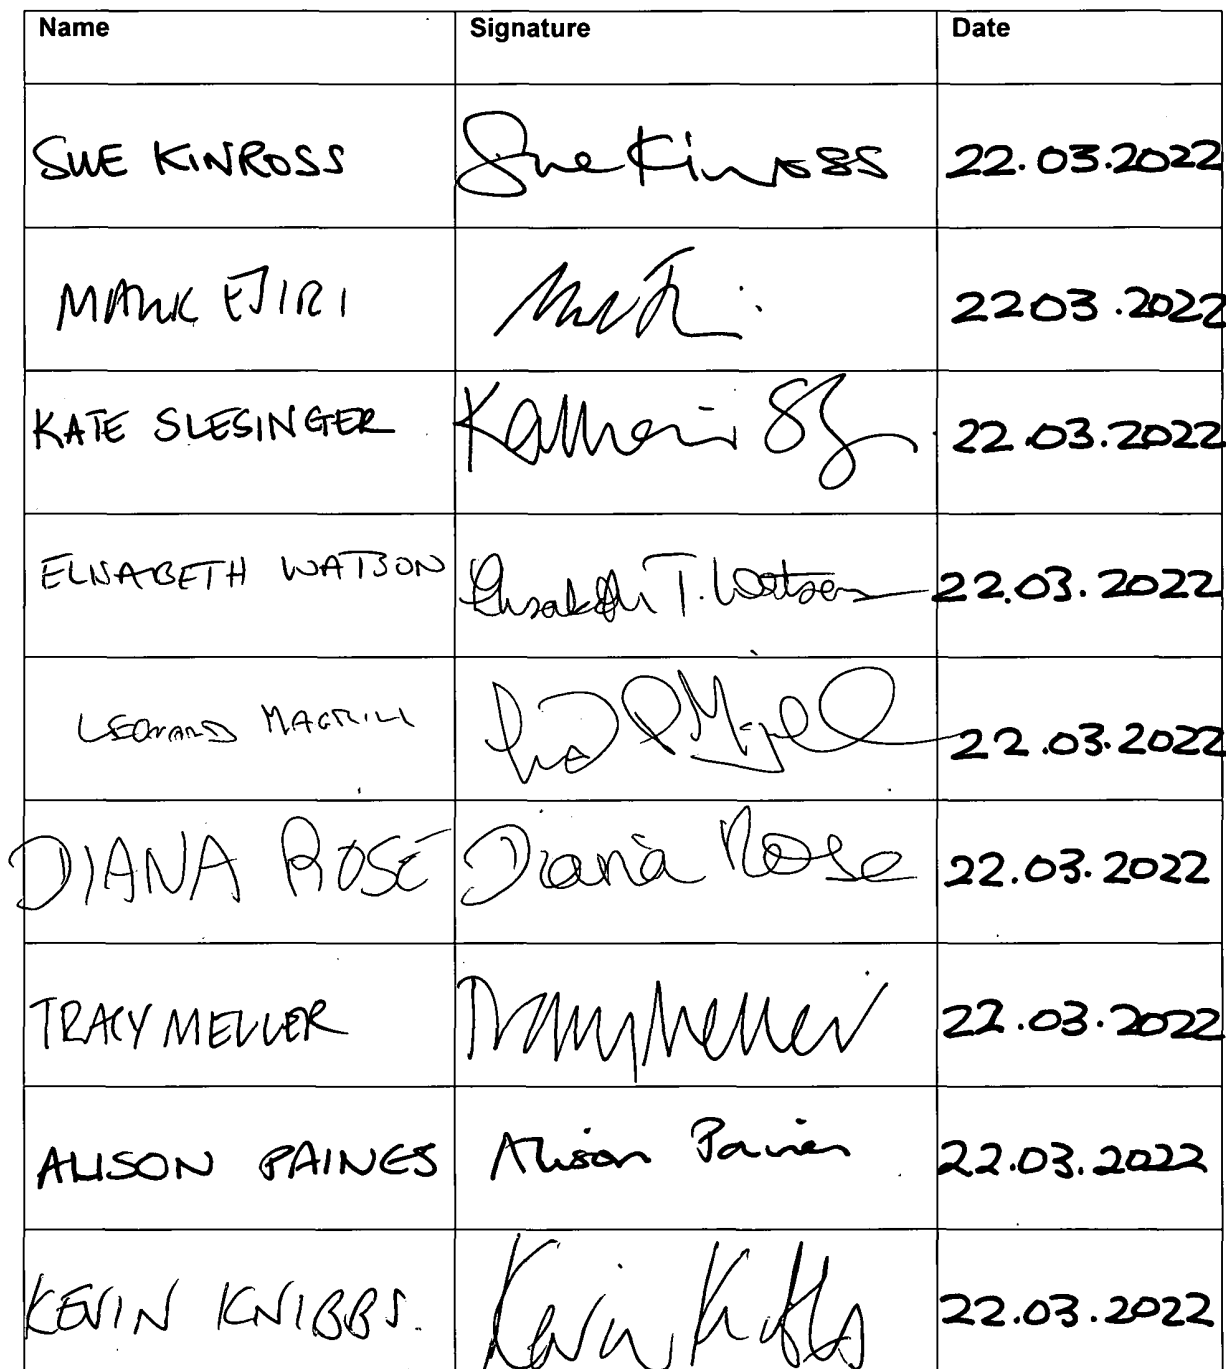 Name Signature Date
SUE KINROSS Sue Kinross 22.03.2022
MARK EJIRI 22 03.2022
KATE SLESINGER 22.03.2022
ELISABETH WATSON Elisabeth T. Watson 22.03.2022
LEONARD MAGRILL 22.03.2022
DIANA ROSE Diana Rose 22.03.2022
TRACY MELLER Tracy Meller 22.03.2022
ALISON PAINES Alison Paines 22.03.2022
KEVIN KNIBBS. Kevin Knibbs 22.03.2022